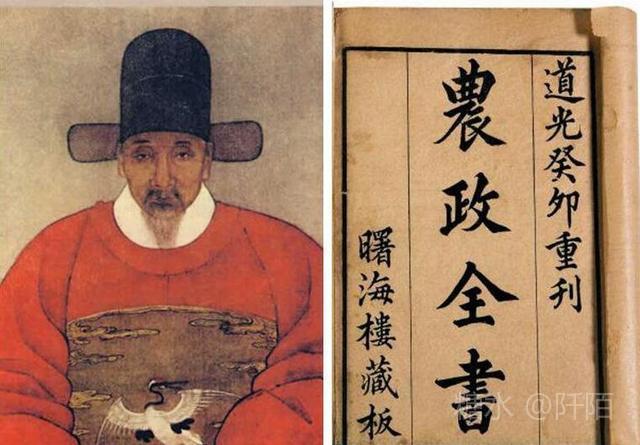 道光癸卯重刊
農政全書
曙海樓藏板
@阡陌